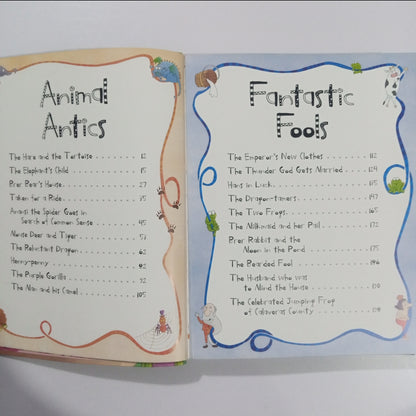 Animal
Antics
The Hare and the Tortoise
The Elephant's Child
Brer Bear's House
Taken for a Ride
Anansi the Spider Goes in
Search of Common Sense
45
Mouse Deer and Tiger
The Reluctant Dragon
62
Henny-penny
The Purple Gorilla
The Man and his Camel
105
Fantastic
Fools
The Emperor's New Clothes
112
The Thunder God Gets Married
124
Hans in Luck
The Dragon-tamers
147
The Two Frogs
165
The Milkmaid and her Pail
172
Brer Rabbit and the
Moon in the Pond
175
The Bearded Fool
186
The Husband who was
to Mind the House
The Celebrated Jumping Frog
of Calaveras County